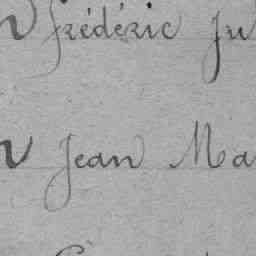 Frédéric Ju
Jean Ma